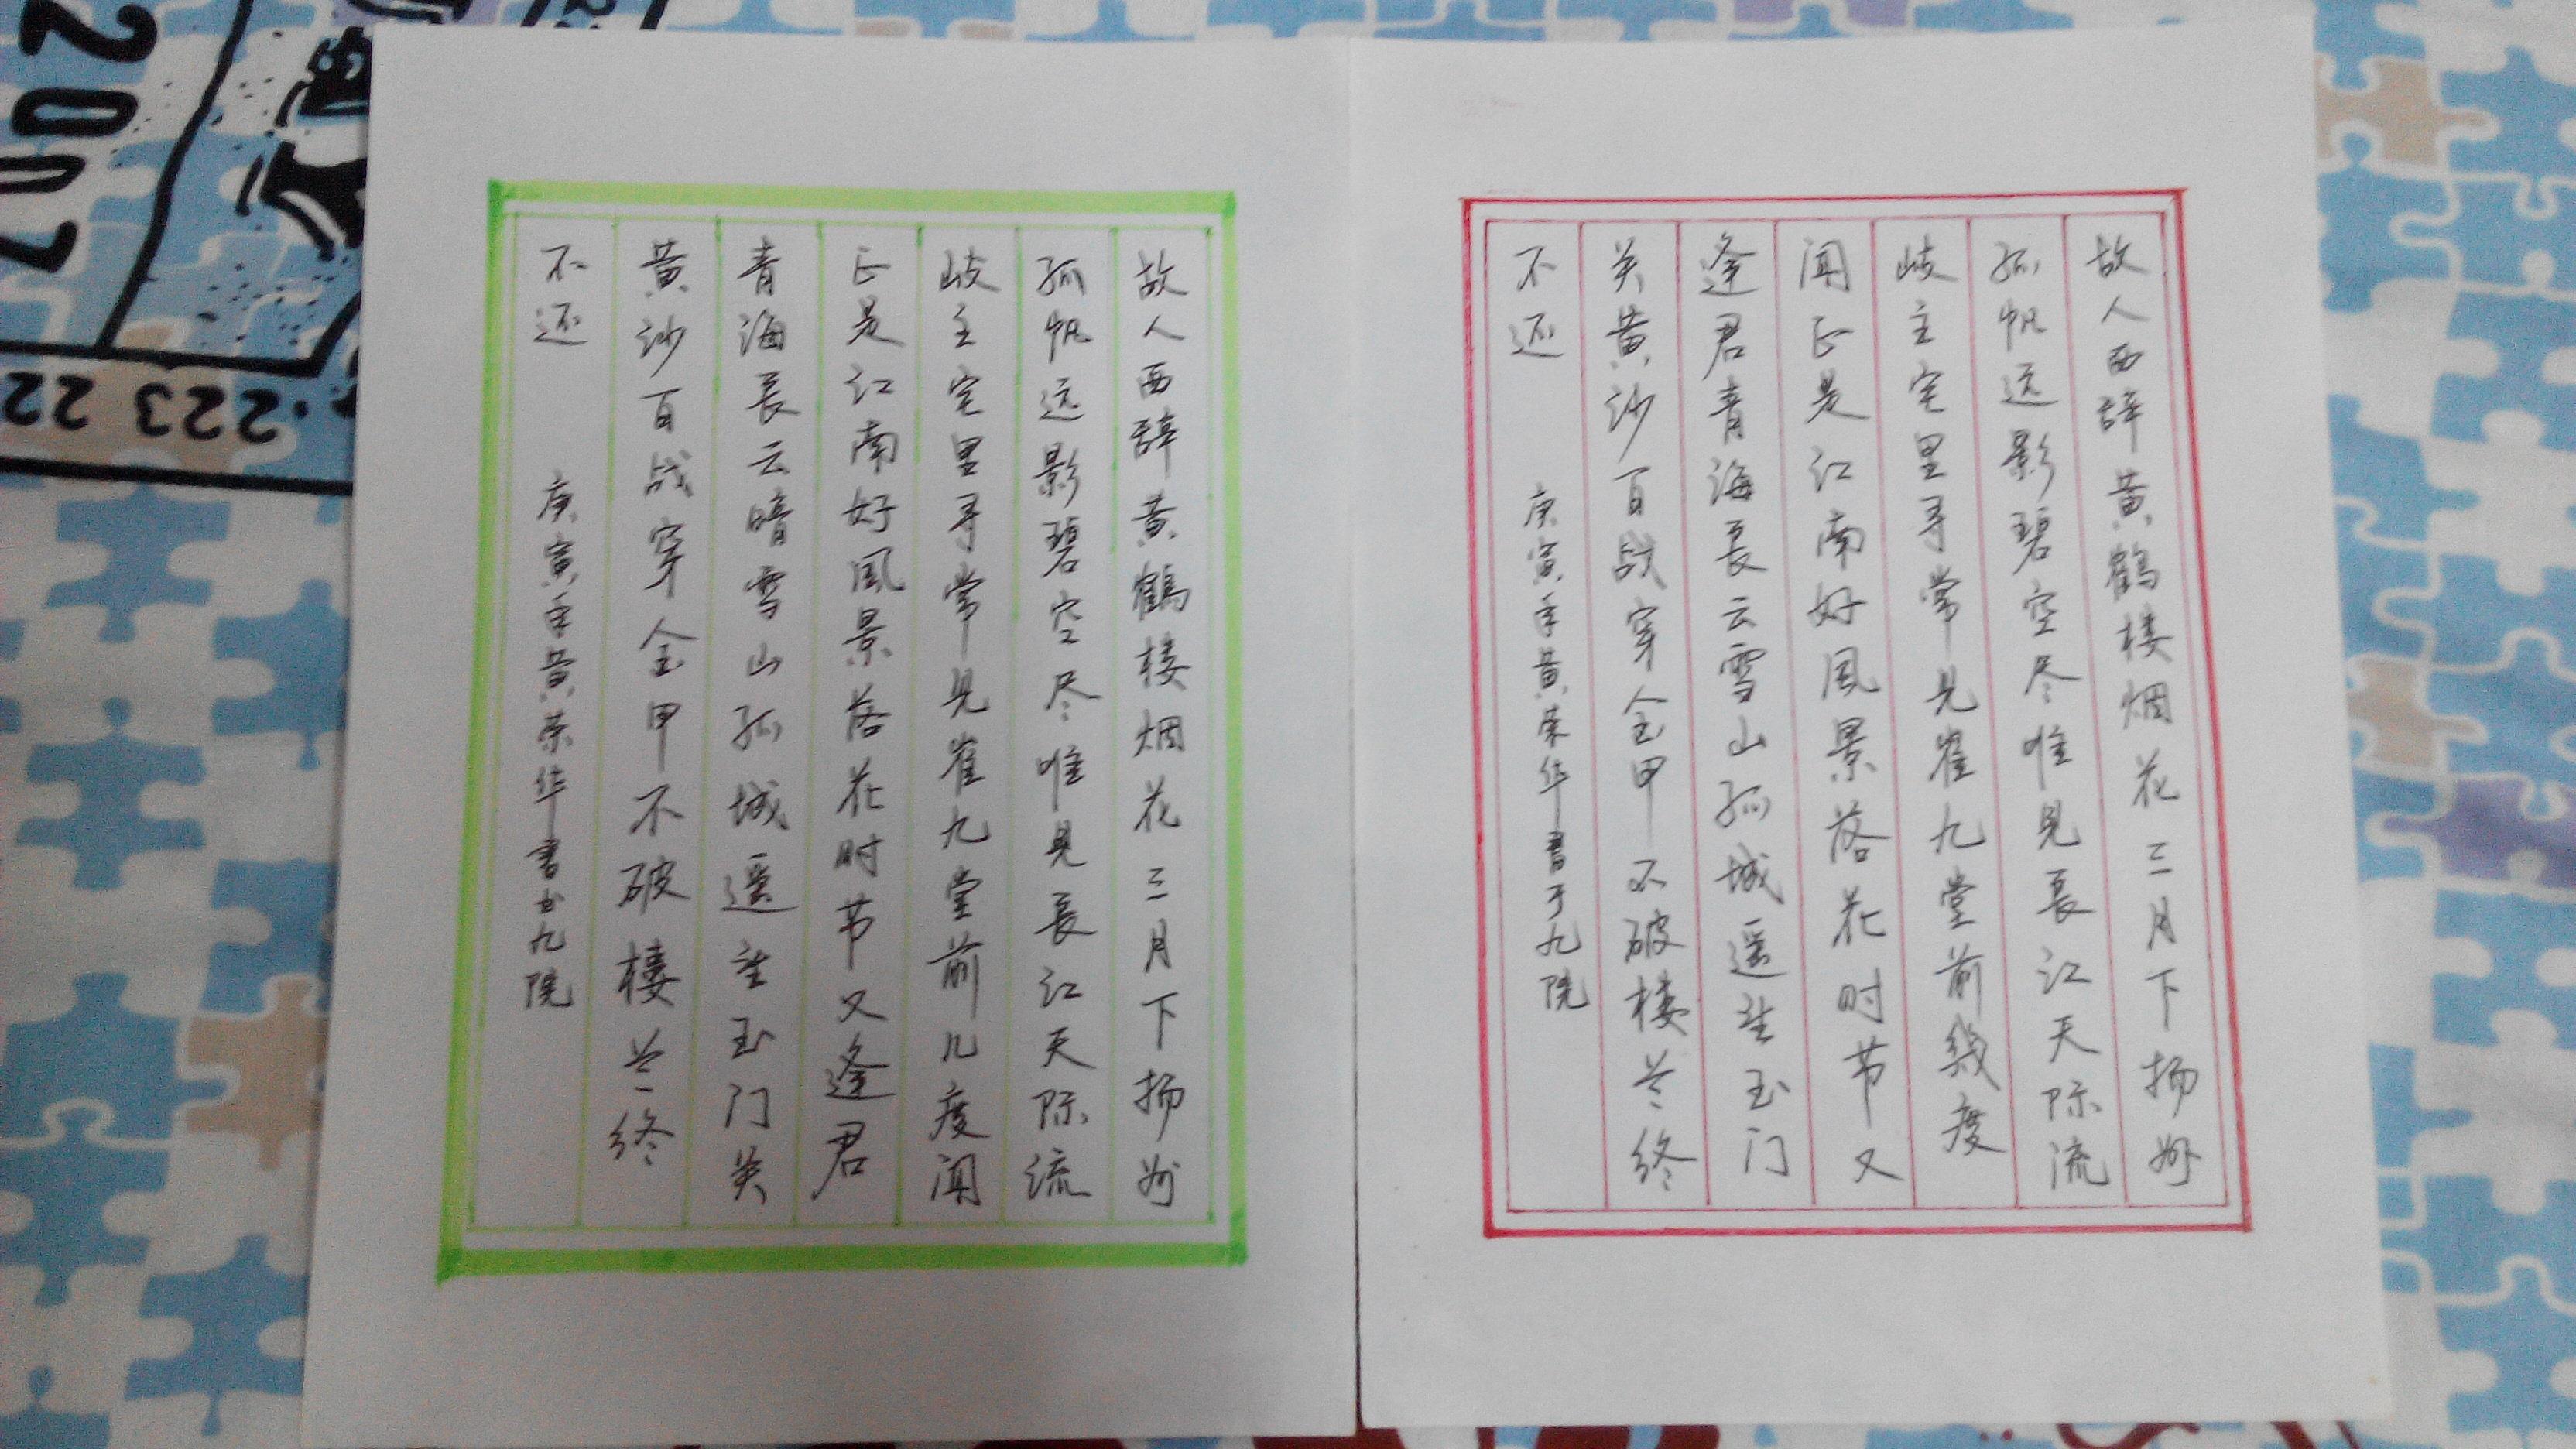 故人西辞黄鹤楼烟花三月下扬州
孤帆远影碧空尽唯见長江天际流
岐主宅里寻常见崔九堂前幾度
闻正是江南好風景落花时节又
逢君青海長云雪山孤城遥望玉门
关黄沙百战穿金甲不破楼兰终
不还
庚寅年黄荣华書于九院
故人西辞黄鹤楼烟花三月下扬州
孤帆远影碧空尽唯見長江天际流
岐主宅里寻常见崔九堂前几度闻
正是江南好風景落花时节又逢君
青海長云暗雪山孤城遥望玉门关
黄沙百战穿金甲不破楼兰终
不还
庚寅年黄荣华書于九院
2007